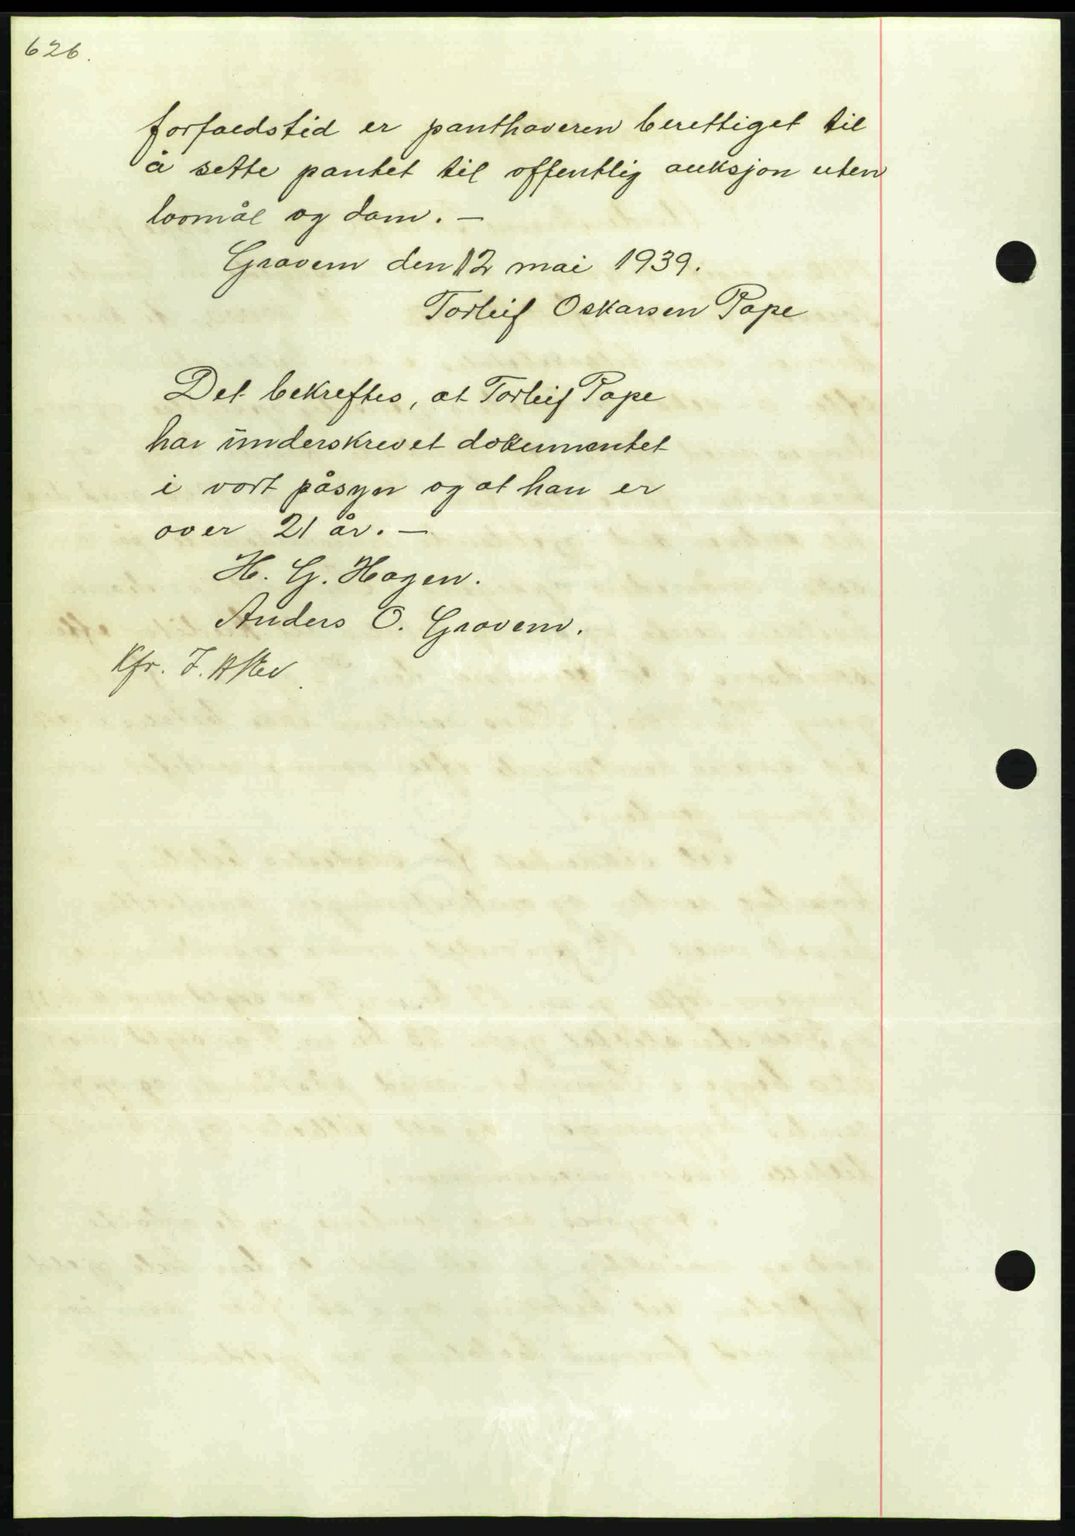 626.
forfaldstid er panthaveren berettiget til
å sette pantet til offentlig auksjon uten
lovmål og dom. —
Gravem den 12 mai 1939.
Torleif Oskarsen Pape
Det bekreftes, at Torleif Pape
har underskrevet dokumentet
i vort påsyn og at han er
over 21 år. —
H. G. Hagen.
Anders O. Gravem.
Kfr.